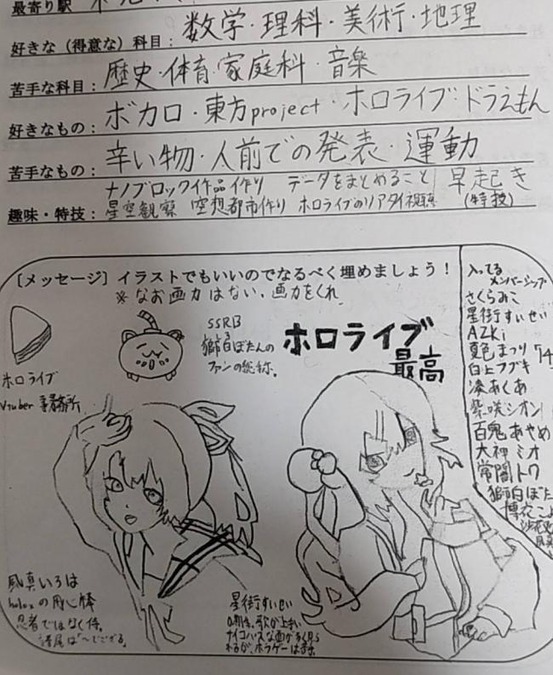 最寄り駅
好きな（得意な）科目：数学・理科・美術・地理
苦手な科目：歴史・体育・家庭科・音楽
好きなもの：ボカロ・東方project・ホロライブ・ドラえもん
苦手なもの：辛い物・人前での発表・運動
ナノブロック作品作り データをまとめること 早起き
趣味・特技：星空観察 空想都市作り ホロライブのリアタイ視聴 (特技)
［メッセージ］イラストでもいいのでなるべく埋めましょう！
※なお画力はない。画力をくれ
SSRB
獅白ぼたんの
ファンの総称。
ホロライブ
最高
ホロライブ
Vtuber事務所
入ってる
メンバーシップ
さくらみこ
星街すいせい
AZKi
夏色まつり
白上フブキ
湊あくあ
紫咲シオン
百鬼あやめ
大神ミオ
常闇トワ
獅白ぼた
博衣こよ
風真いろは
holoxの用心棒
忍者ではなく侍。
語尾は「～でござる。
星街すいせい
歌が上手い
サイコパスな面が
ホラゲーは